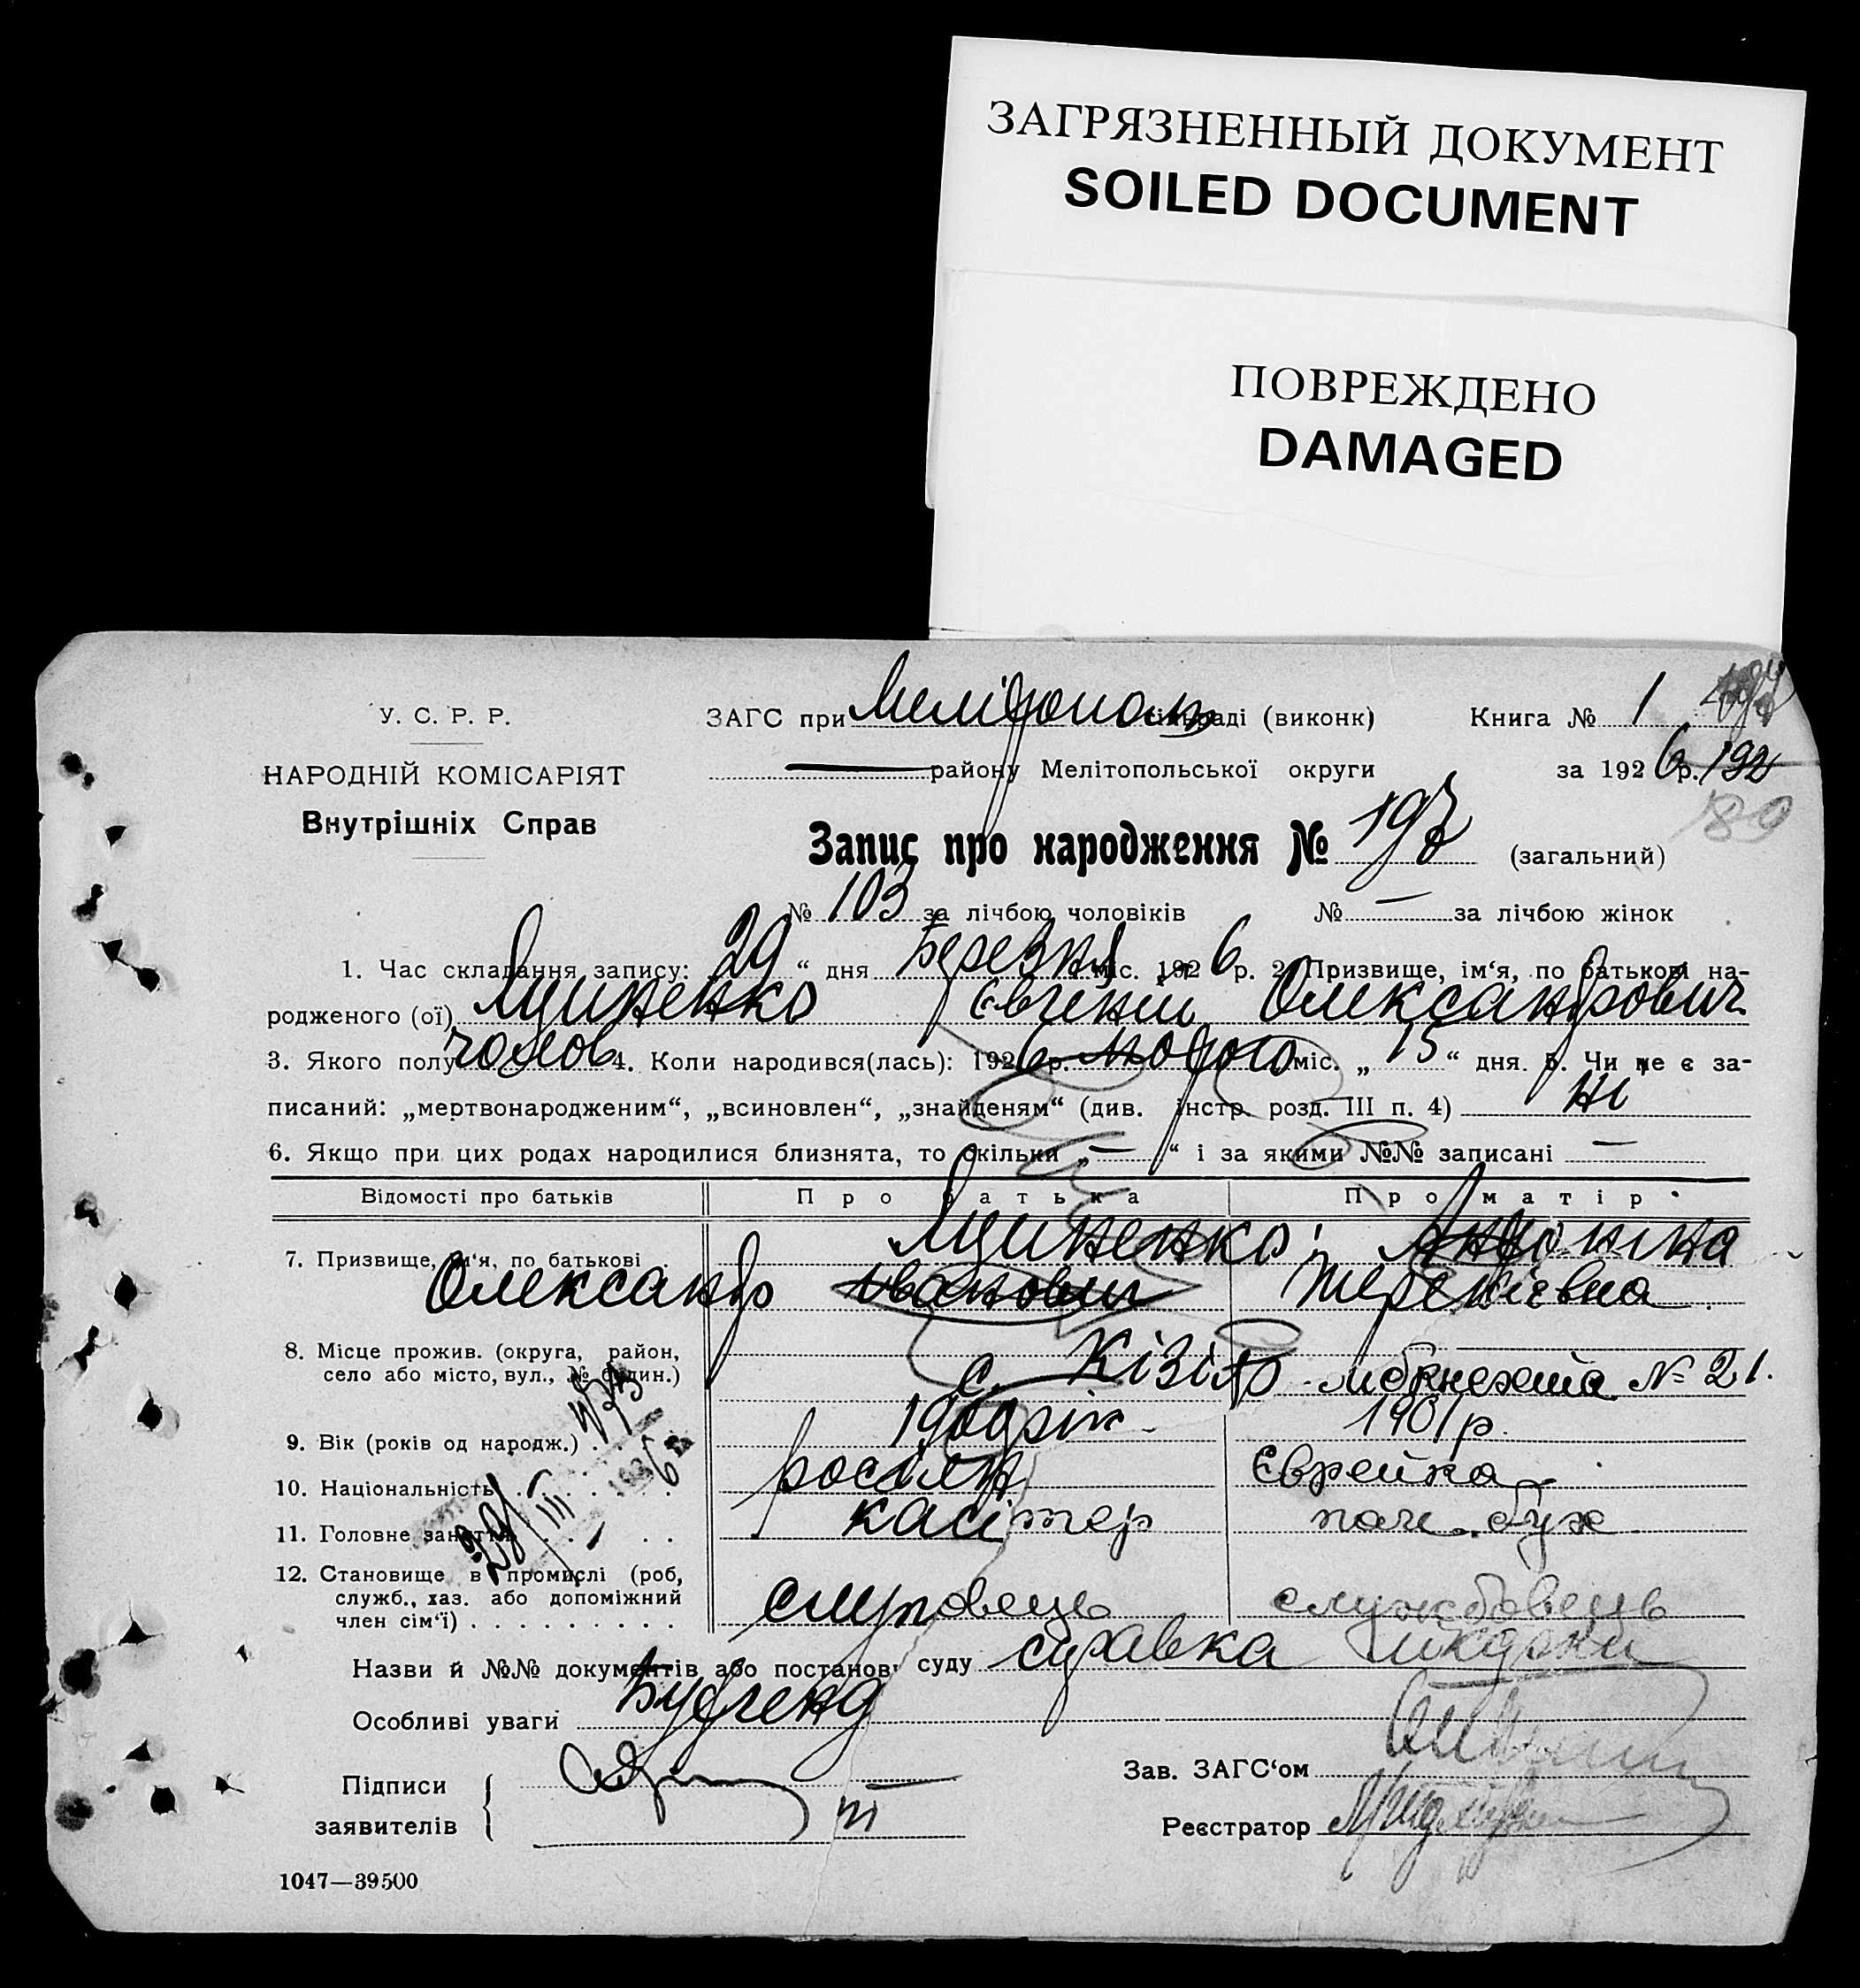 ЗАГРЯЗНЕННЫЙ ДОКУМЕНТ
SOILED DOCUMENT
ПОВРЕЖДЕНО
DAMAGED
У. С. Р. Р.
НАРОДНІЙ КОМІСАРІЯТ
Внутрішніх Справ
ЗАГС при Мелітополь сільраді (виконк) Книга № 1
району Мелітопольської округи за 1926 р. 192
180
Запис про народження № 197 (загальний)
№ 103 за лічбою чоловіків № — за лічбою жінок
1. Час складання запису: 29 “ дня Березня міс. 1926 р. 2. Призвище, ім‘я, по батькові на-
родженого (ої) Яциненко Євгеній Олександрович
3. Якого полу чолов 4. Коли народився(лась): 1926 р. лютого міс. „ 15 “ дня. 5. Чи не є за-
писаний: „мертвонародженим“, „всиновлен“, „знайденям“ (див. інстр. розд. III п. 4) ні
6. Якщо при цих родах народилися близнята, то скільки „ — “ і за якими №№ записані —
Відомості про батьків Про батька Про матір
7. Призвище, ім‘я, по батькові Яциненко Антоніна
Олександр Іванович
8. Місце прожив. (округа, район,
село або місто, вул., № будин.) с. Кізія № 21.
9. Вік (років од народж.) 1900 рік 1901 р.
10. Національність росіян Єврейка
11. Головне заняття касітер
12. Становище в промислі (роб,
служб., хаз. або допоміжний
член сім‘ї) службовець
Назви й №№ документів або постанов суду справка
Особливі уваги
Підписи
заявителів
Зав. ЗАГС‘ом
Реєстратор
1047—39500